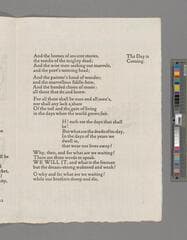 And the homes of ancient stories,
the tombs of the mighty dead;
And the wise men seeking out marvels,
and the poet's teeming head;
And the painter's hand of wonder;
and the marvellous fiddle-bow,
And the banded choirs of music:
all those that do and know.
For all these shall be ours and all men's,
nor shall any lack a share
Of the toil and the gain of living
in the days when the world grows fair.
H! such are the days that shall
be!
But what are the deeds of to-day,
In the days of the years we
dwell in,
that wear our lives away?
Why, then, and for what are we waiting?
There are three words to speak.
WE WILL IT, and what is the foeman
but the dream-strong wakened and weak?
O why and for what are we waiting?
while our brothers droop and die,
The Day is
Coming